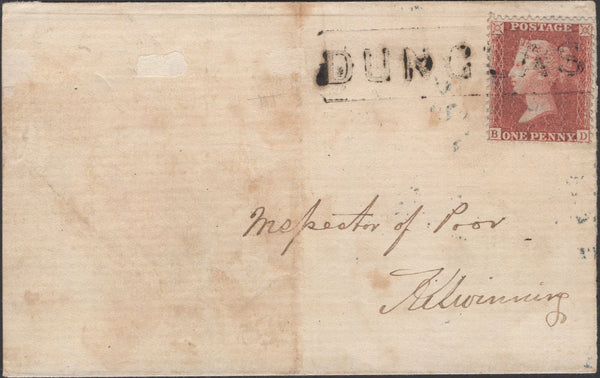 DUNGLAS
POSTAGE
B ONE PENNY D
Inspector of Poor
Kilwinning